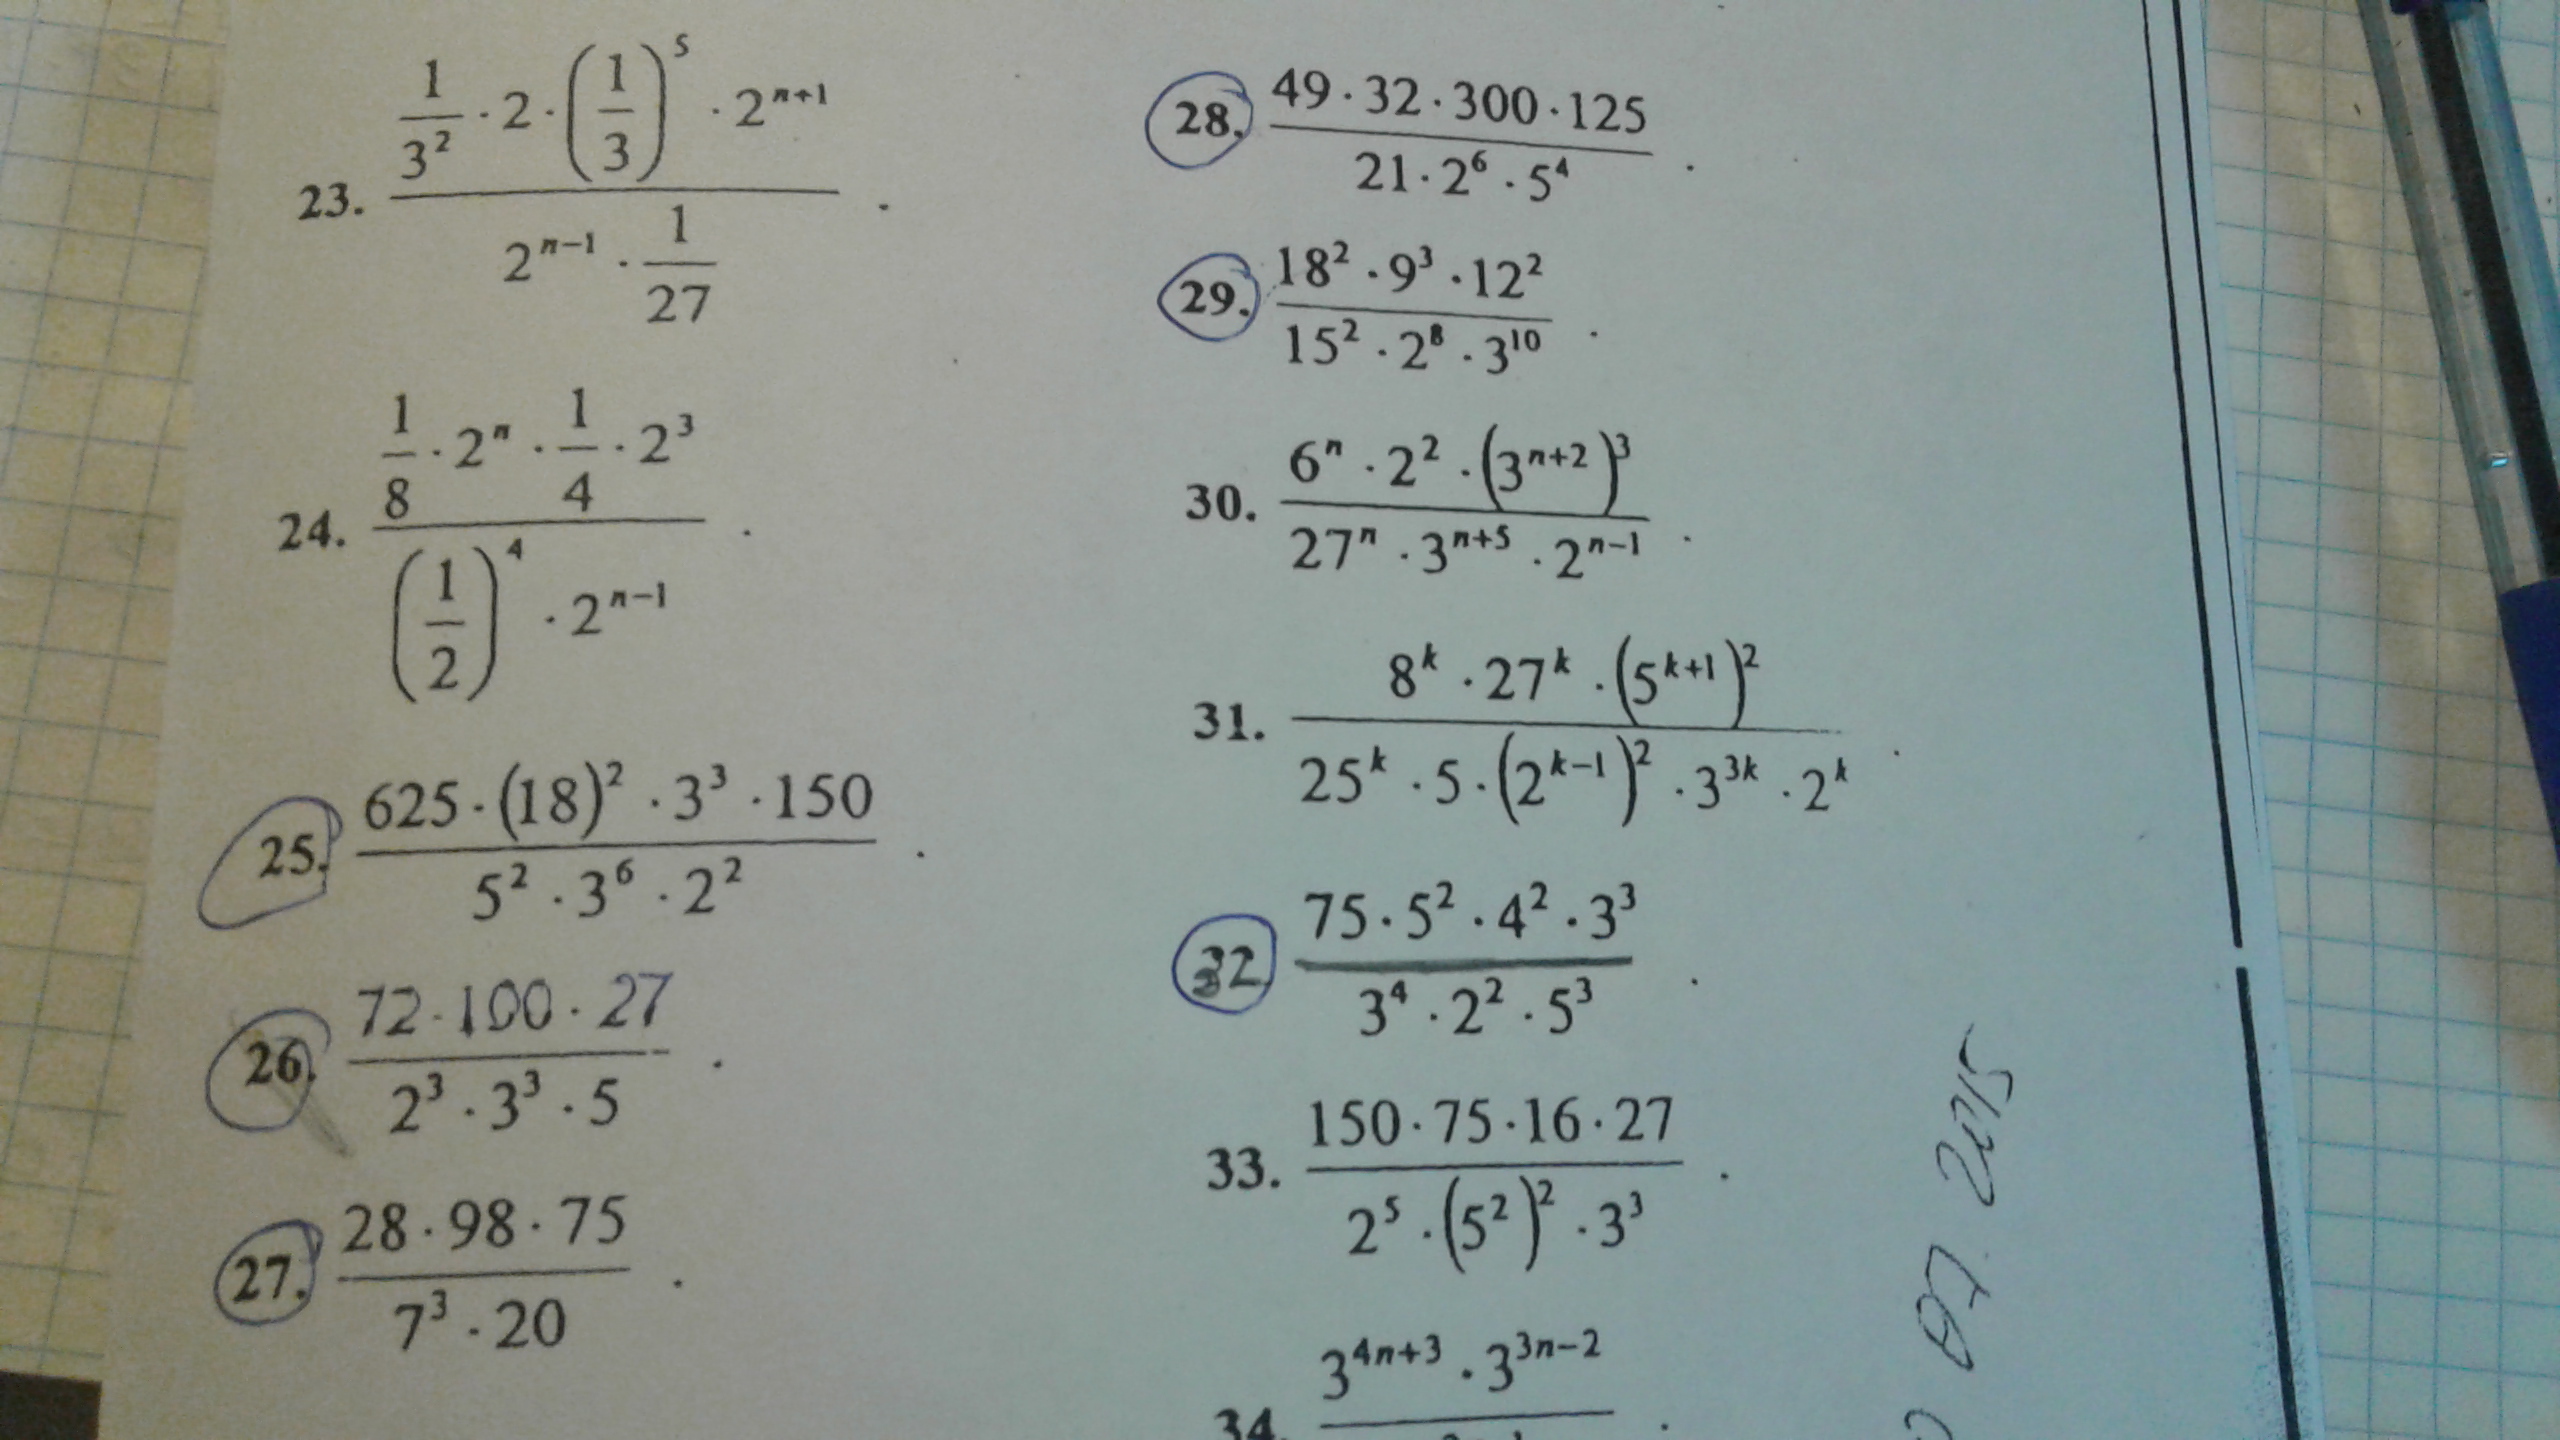 23. \frac{\frac{1}{3^2} \cdot 2 \cdot \left(\frac{1}{3}\right)^5 \cdot 2^{n+1}}{2^{n-1} \cdot \frac{1}{27}} .
24. \frac{\frac{1}{8} \cdot 2^n \cdot \frac{1}{4} \cdot 2^3}{\left(\frac{1}{2}\right)^4 \cdot 2^{n-1}} .
25. \frac{625 \cdot (18)^2 \cdot 3^3 \cdot 150}{5^2 \cdot 3^6 \cdot 2^2} .
26. \frac{72 \cdot 100 \cdot 27}{2^3 \cdot 3^3 \cdot 5} .
27. \frac{28 \cdot 98 \cdot 75}{7^3 \cdot 20} .
28. \frac{49 \cdot 32 \cdot 300 \cdot 125}{21 \cdot 2^6 \cdot 5^4} .
29. \frac{18^2 \cdot 9^3 \cdot 12^2}{15^2 \cdot 2^8 \cdot 3^{10}} .
30. \frac{6^n \cdot 2^2 \cdot (3^{n+2})^3}{27^n \cdot 3^{n+5} \cdot 2^{n-1}} .
31. \frac{8^k \cdot 27^k \cdot (5^{k+1})^2}{25^k \cdot 5 \cdot (2^{k-1})^2 \cdot 3^{3k} \cdot 2^k} .
32 \frac{75 \cdot 5^2 \cdot 4^2 \cdot 3^3}{3^4 \cdot 2^2 \cdot 5^3} .
33. \frac{150 \cdot 75 \cdot 16 \cdot 27}{2^5 \cdot (5^2)^2 \cdot 3^3} .
34. 3^{4n+3} \cdot 3^{3n-2} .
07. 2015